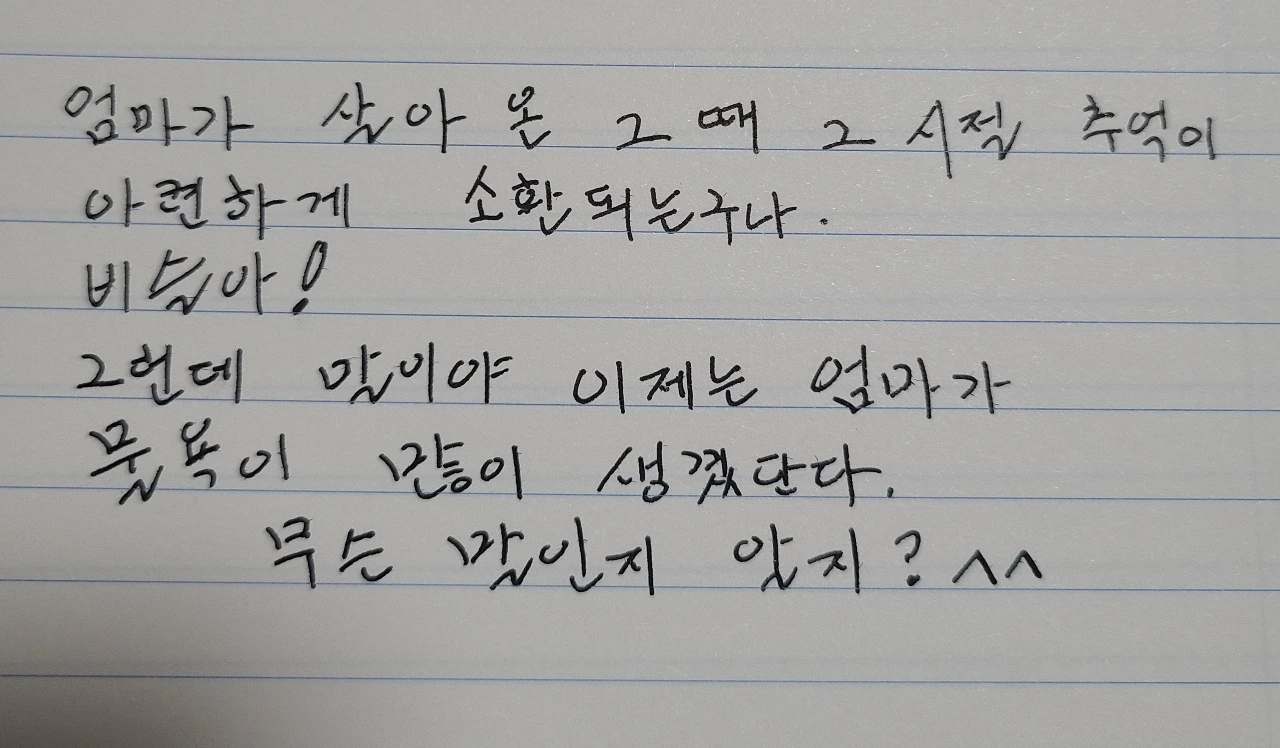 엄마가 살아 온 그 때 그 시절 추억이
아련하게 소환되는구나.
비슬아!
그런데 말이야 이제는 엄마가
물욕이 많이 생겼단다.
무슨 말인지 알지? ^^